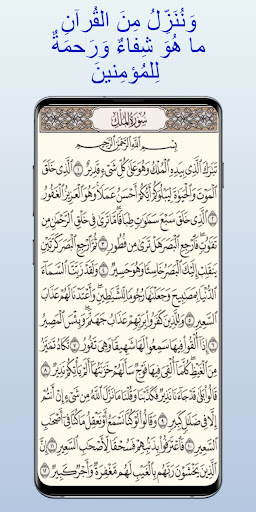 وَنُنَزِّلُ مِنَ القُرآنِ
ما هُوَ شِفاءٌ وَرَحمَةٌ
لِلمُؤمِنينَ
سُورَةُ المُلْكِ
بِسْمِ اللَّهِ الرَّحْمَٰنِ الرَّحِيمِ
تَبَٰرَكَ الَّذِي بِيَدِهِ الْمُلْكُ وَهُوَ عَلَىٰ كُلِّ شَيْءٍ قَدِيرٌ ١ الَّذِي خَلَقَ
الْمَوْتَ وَالْحَيَوٰةَ لِيَبْلُوَكُمْ أَيُّكُمْ أَحْسَنُ عَمَلًا وَهُوَ الْعَزِيزُ الْغَفُورُ
٢ الَّذِي خَلَقَ سَبْعَ سَمَٰوَٰتٍ طِبَاقًا مَّا تَرَىٰ فِي خَلْقِ الرَّحْمَٰنِ مِن
تَفَٰوُتٍ فَارْجِعِ الْبَصَرَ هَلْ تَرَىٰ مِن فُطُورٍ ٣ ثُمَّ ارْجِعِ الْبَصَرَ كَرَّتَيْنِ
يَنقَلِبْ إِلَيْكَ الْبَصَرُ خَاسِئًا وَهُوَ حَسِيرٌ ٤ وَلَقَدْ زَيَّنَّا السَّمَاءَ
الدُّنْيَا بِمَصَٰبِيحَ وَجَعَلْنَٰهَا رُجُومًا لِّلشَّيَٰطِينِ وَأَعْتَدْنَا لَهُمْ عَذَابَ
السَّعِيرِ ٥ وَلِلَّذِينَ كَفَرُوا بِرَبِّهِمْ عَذَابُ جَهَنَّمَ وَبِئْسَ الْمَصِيرُ
٦ إِذَا أُلْقُوا فِيهَا سَمِعُوا لَهَا شَهِيقًا وَهِيَ تَفُورُ ٧ تَكَادُ تَمَيَّزُ
مِنَ الْغَيْظِ كُلَّمَا أُلْقِيَ فِيهَا فَوْجٌ سَأَلَهُمْ خَزَنَتُهَا أَلَمْ يَأْتِكُمْ نَذِيرٌ ٨
قَالُوا بَلَىٰ قَدْ جَاءَنَا نَذِيرٌ فَكَذَّبْنَا وَقُلْنَا مَا نَزَّلَ اللَّهُ مِن شَيْءٍ إِنْ أَنتُمْ
إِلَّا فِي ضَلَٰلٍ كَبِيرٍ ٩ وَقَالُوا لَوْ كُنَّا نَسْمَعُ أَوْ نَعْقِلُ مَا كُنَّا فِي أَصْحَٰبِ
السَّعِيرِ ١٠ فَاعْتَرَفُوا بِذَنبِهِمْ فَسُحْقًا لِّأَصْحَٰبِ السَّعِيرِ ١١ إِنَّ
الَّذِينَ يَخْشَوْنَ رَبَّهُم بِالْغَيْبِ لَهُم مَّغْفِرَةٌ وَأَجْرٌ كَبِيرٌ ١٢